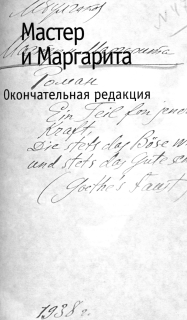 Мастер
и Маргарита
Роман
Окончательная редакция
Ein Teil von jener
Kraft,
Die stets das Böse w
und stets das Gute sc
(Goethe's Faust)
1938 г.